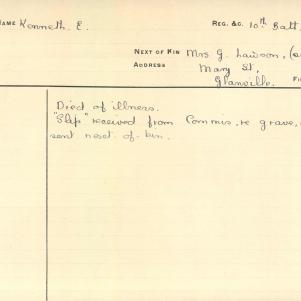 NAME Kenneth. E. REG. &C. 10th Batt.
NEXT OF KIN Mrs G. Lawson,
ADDRESS Mary St,
Glanville.
Died of illness.
"Slip" received from Commis, re grave,
sent next. of. kin.